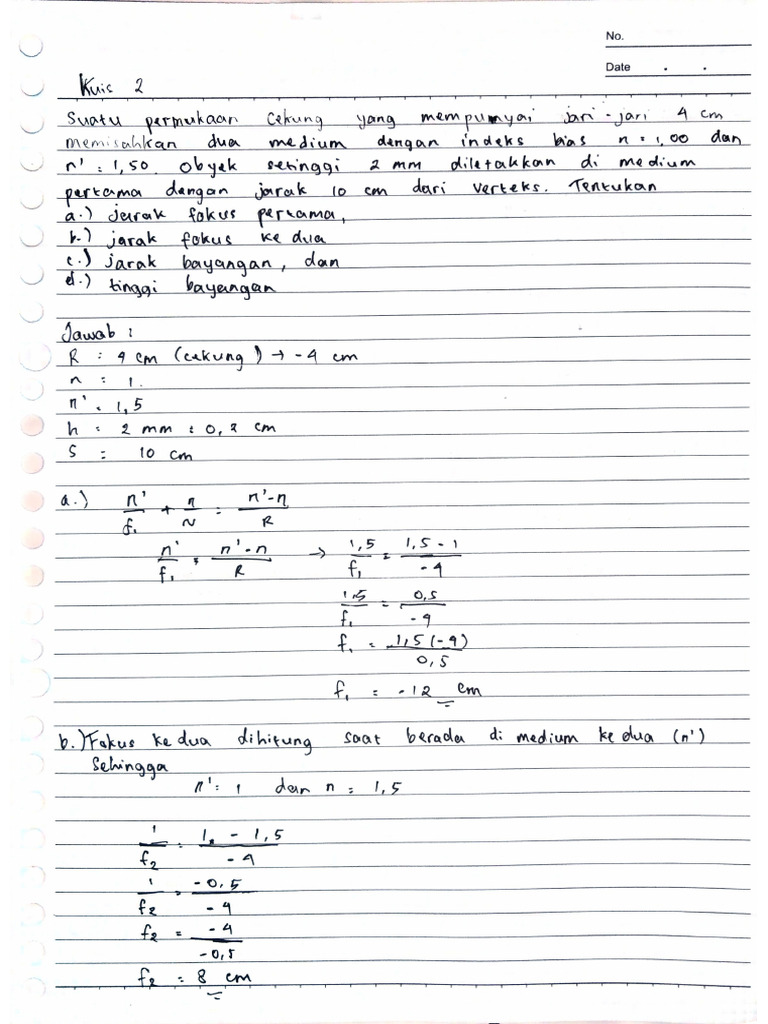 No.
Date . .
Kuis 2
Suatu permukaan cekung yang mempunyai jari-jari 4 cm
memisahkan dua medium dengan indeks bias n = 1,00 dan
n' = 1,50. Obyek setinggi 2 mm diletakkan di medium
pertama dengan jarak 10 cm dari verteks. Tentukan
a.) jarak fokus pertama,
b.) jarak fokus ke dua
c.) jarak bayangan, dan
d.) tinggi bayangan
Jawab :
R : 4 cm (cekung) → -4 cm
n = 1.
n' = 1,5
h = 2 mm = 0,2 cm
S = 10 cm
a.) n'/f₁ + n/∞ = n'-n/R
n'/f₁ = n'-n/R → 1,5/f₁ = 1,5 - 1/-4
1,5/f₁ = 0,5/-4
f₁ = 1,5(-4)/0,5
f₁ = -12 cm
b.) Fokus ke dua dihitung saat berada di medium ke dua (n')
Sehingga
n' = 1 dan n = 1,5
1/f₂ = 1 - 1,5/-4
1/f₂ = -0,5/-4
f₂ = -4/-0,5
f₂ = 8 cm